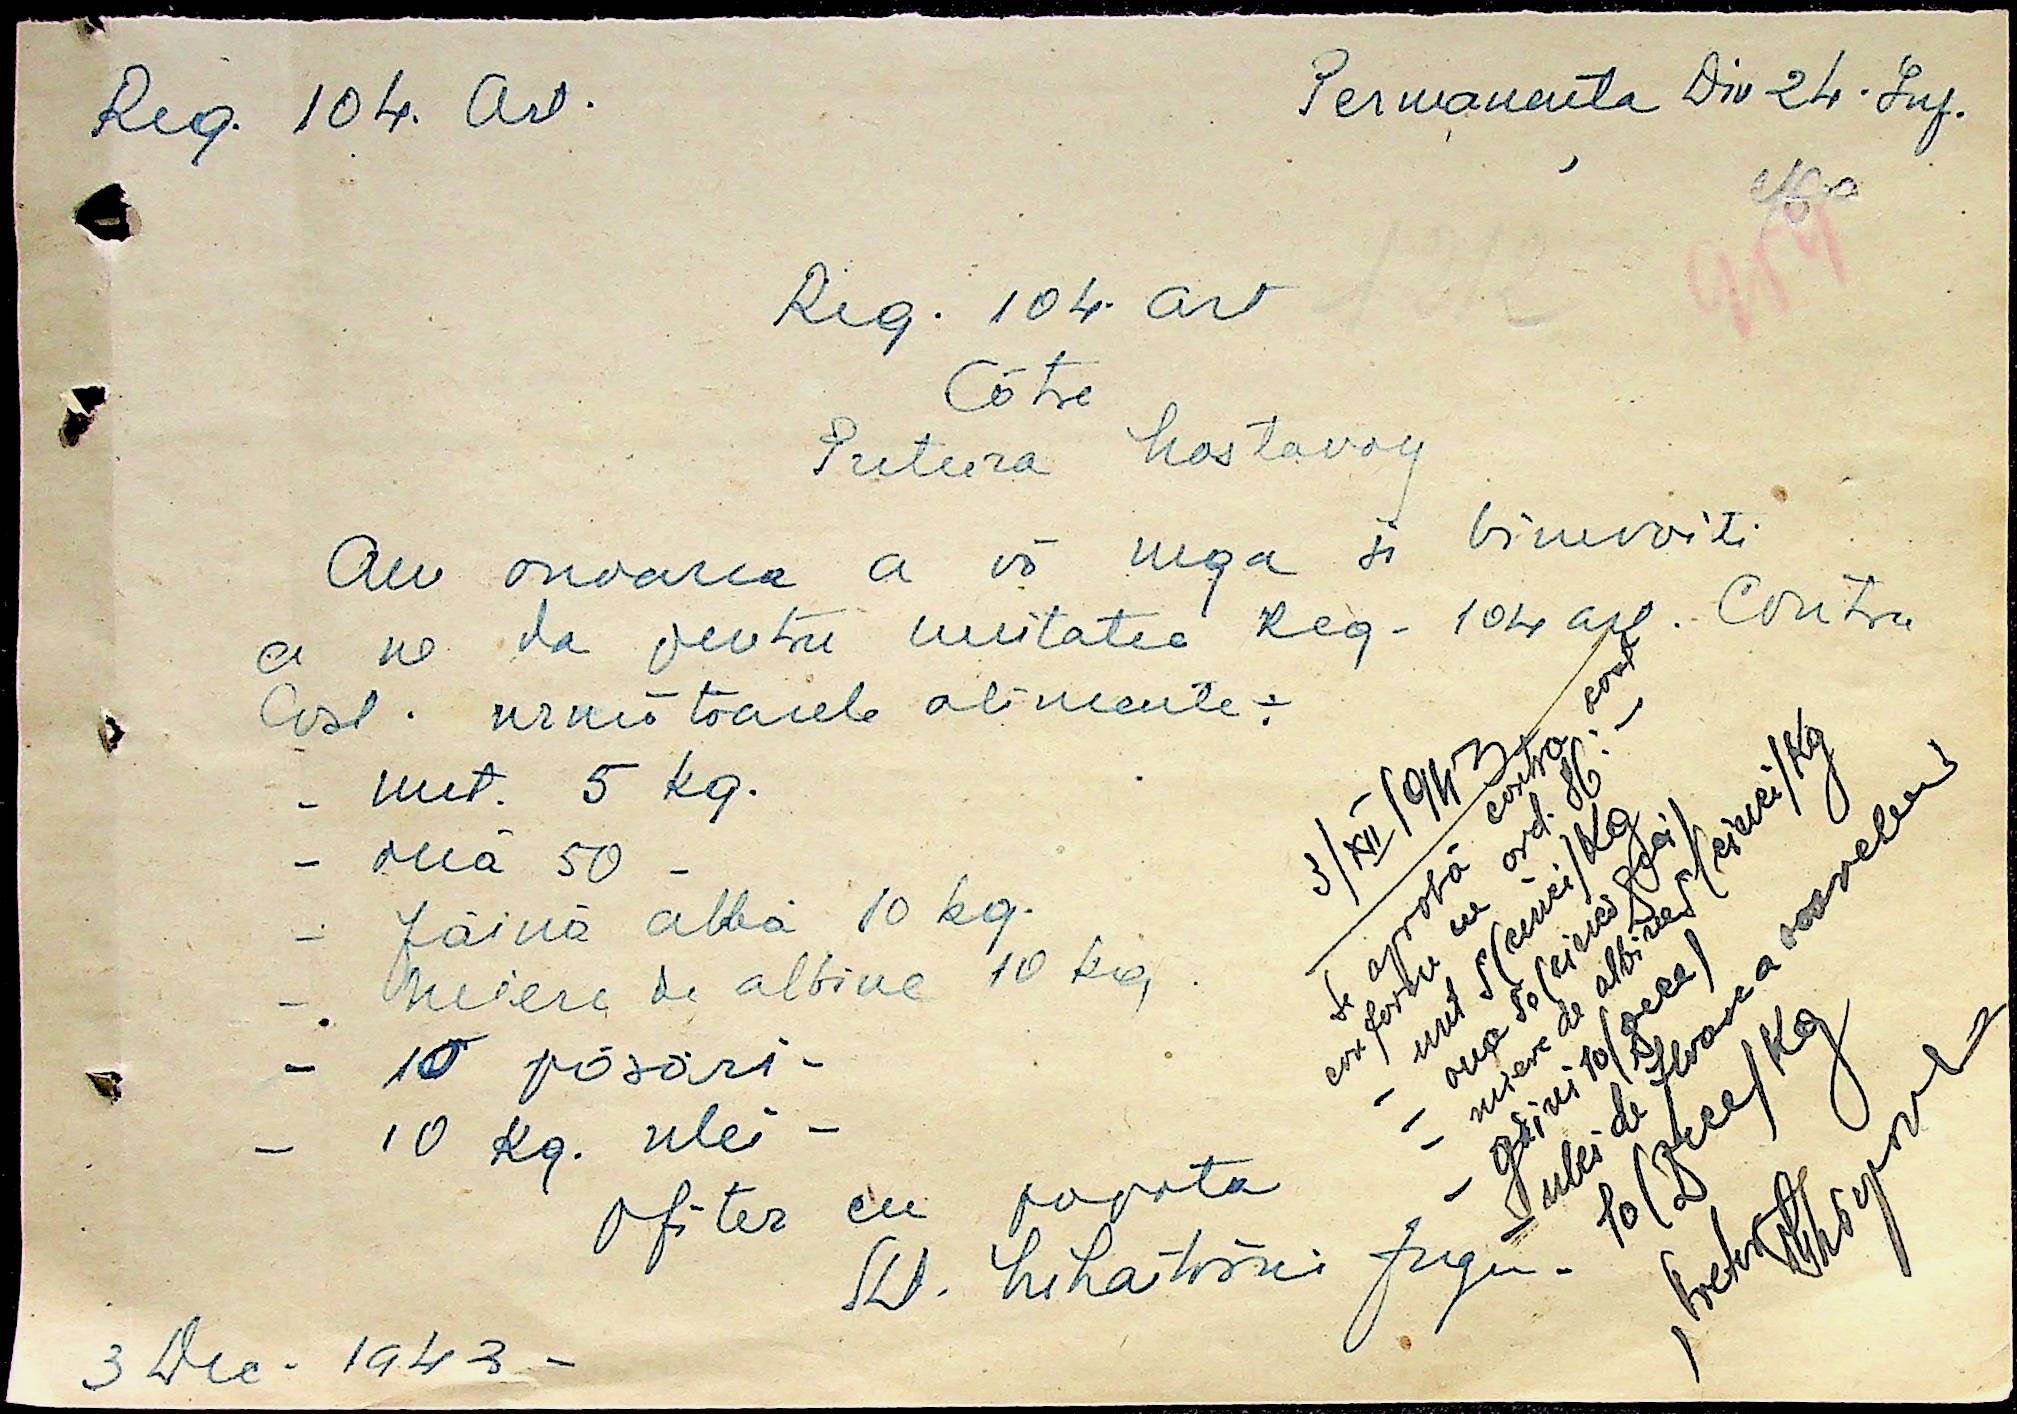 Reg. 104. Art.
Permanența Div 24. Inf.
Reg. 104. Art
Cötre
Pretura
Am onoarea a vö ruga si binevoiti
a ne da pentru unitatea Reg. 104 art. Contra
Cost. urmötoarele alimente:
- unt. 5 kg.
- ouă 50 -
- făină albă 10 kg.
- Miere de albine 10 kg.
- 10 pösöri -
- 10 kg. ulei -
ofiter cu popota
3 Dec. 1943 -
3/XII/943
se aprobă contra cost
conform cu ord.
- unt 5 (cinci) kg
- ouă 50 (cinci zeci)
- miere de albine 5 (cinci) kg
- găini 10 (zece)
- ulei de
10 (Zece) kg
Pretor